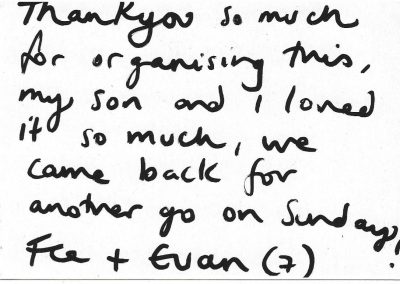 Thankyou so much
for organising this,
my son and I loved
it so much, we
came back for
another go on Sunday!
Fee + Evan (7)